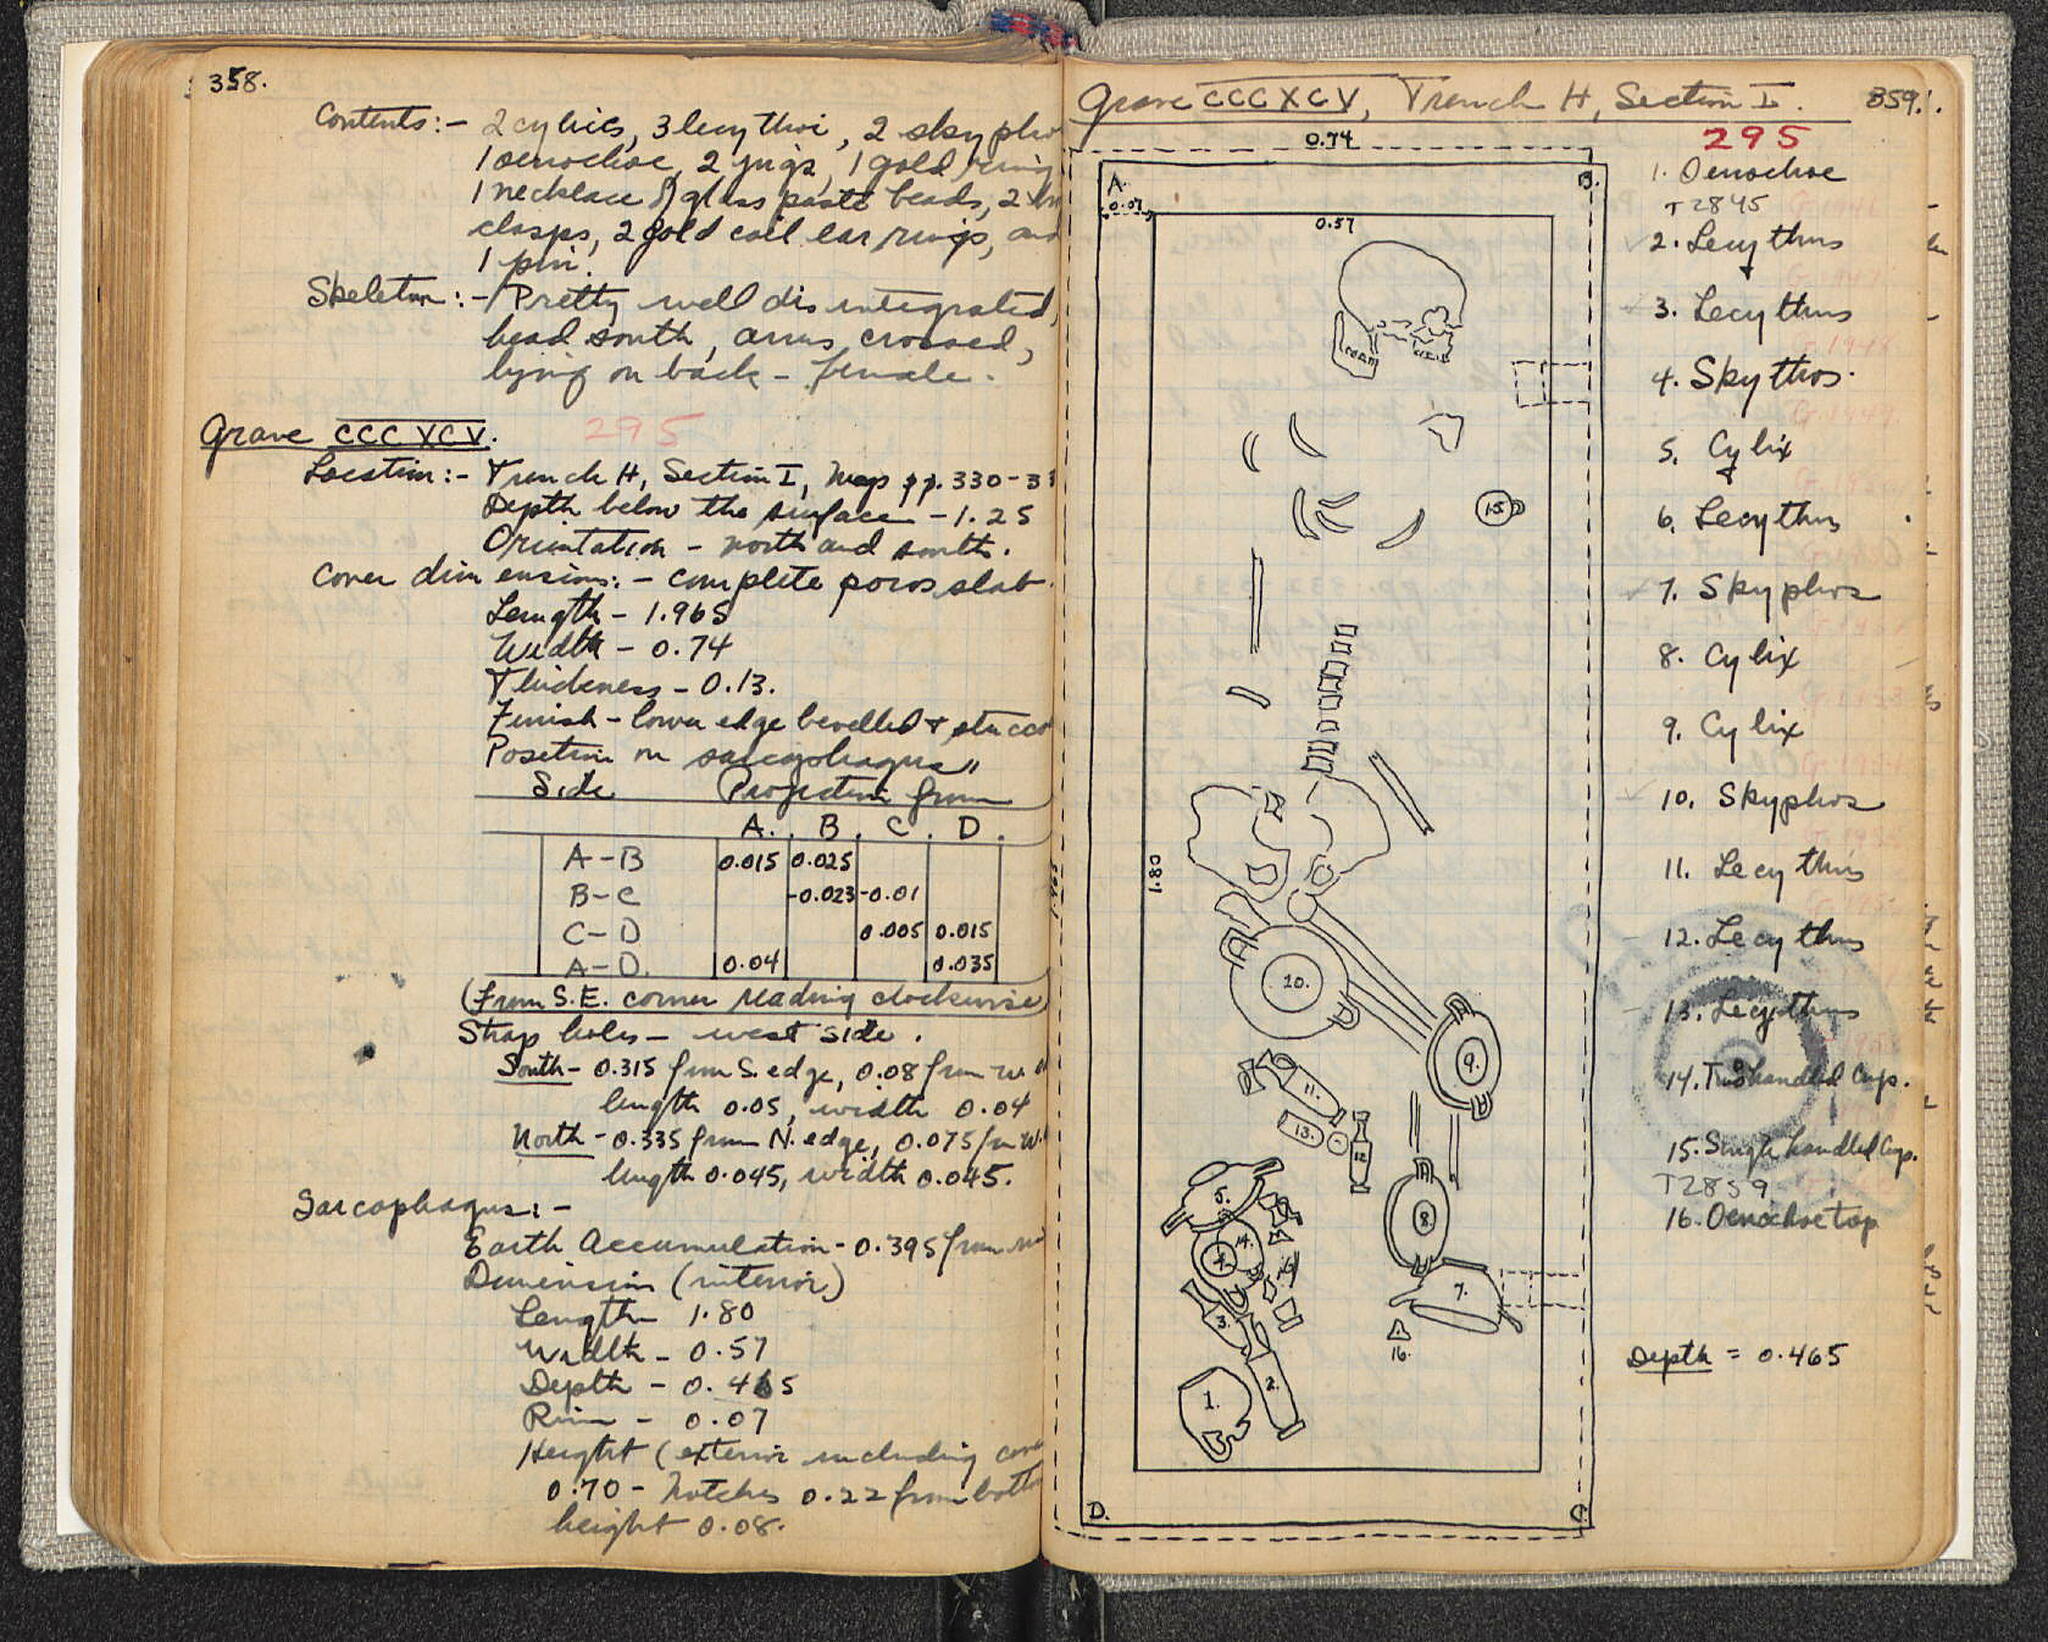 358.
Contents:- 2 cylices, 3 lecythoi, 2 skypho
1 oenochoe, 2 jugs, 1 gold ring
1 necklace of glass paste beads, 2
clasps, 2 gold coil earrings, and
1 pin.
Skeleton:- Pretty well disintegrated,
head south, arms crossed,
lying on back - female.
Grave CCCXCV. 295
Location:- Trench H, Section I, Map pp. 330-33
Depth below the surface - 1.25
Orientation - north and south.
Cover dimensions:- complete poros slab.
Length - 1.965
Width - 0.74
Thickness - 0.13.
Finish - lower edge bevelled + stucco
Position on sarcophagus
Side Projection from
A. B. C. D.
A-B 0.015 0.025
B-C -0.023 -0.01
C-D 0.005 0.015
A-D. 0.04 0.035
(from S.E. corner reading clockwise)
Strap holes - west side.
South - 0.315 from S. edge, 0.08 from W.
length 0.05, width 0.04
North - 0.335 from N. edge, 0.075 from W.
length 0.045, width 0.045.
Sarcophagus:-
Earth Accumulation - 0.395 from
Dimension (interior)
Length 1.80
Width - 0.57
Depth - 0.465
Rim - 0.07
Height (exterior including cov
0.70 - Notches 0.22 from botto
height 0.08.
Grave CCCXCV, Trench H, Section I. 359.
295
0.74
A. B.
0.07
0.57
15
1.80
1.965
10.
9.
11.
13.
12
5.
14.
4.
8.
16
7.
3.
16.
2.
1.
D. C.
1. Oenochoe
T2845
2. Lecythus
3. Lecythus
4. Skythos.
5. Cylix
6. Lecythus
7. Skyphos
8. Cylix
9. Cylix
10. Skyphos
11. Lecythus
12. Lecythus
13. Lecythus
14. Two handled Cup.
15. Single handled Cup.
T2859
16. Oenochoe top
Depth = 0.465